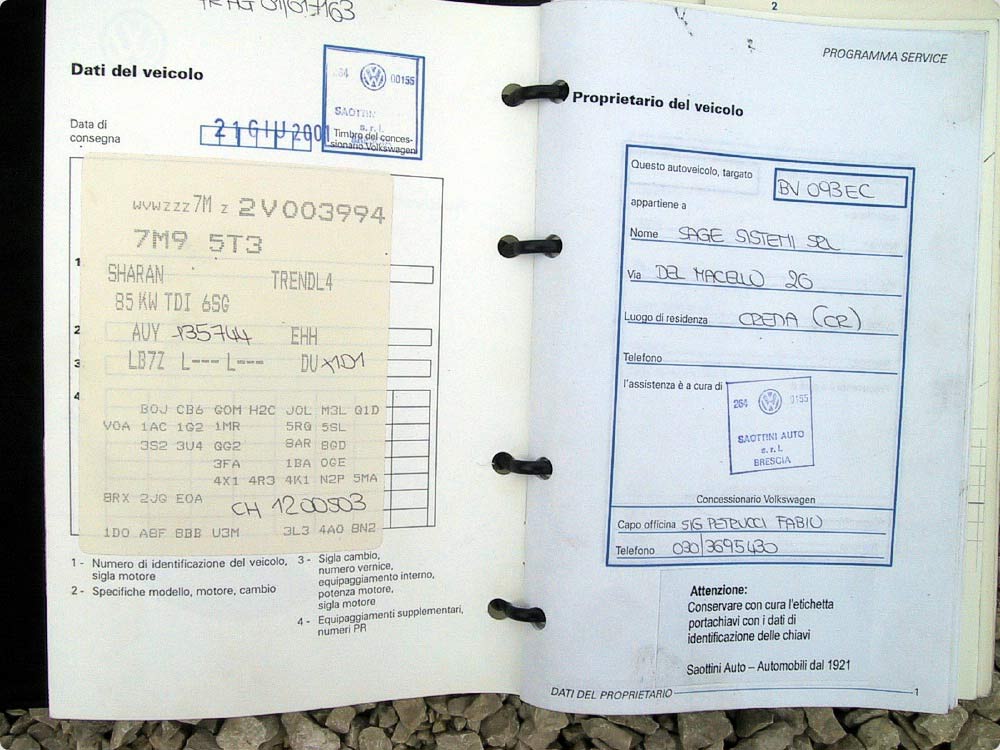 Dati del veicolo
264 00155
SAOTTINI
s.r.l.
Data di
consegna
21 GIU 2001
Timbro del conces-
sionario Volkswagen
WVWZZZ 7M Z 2V003994
7M9 5T3
SHARAN TRENDL4
85 KW TDI 6SG
AUY 135744 EHH
LB7Z L--- L--- DU X101
BOJ CB6 GOM H2C JOL M3L Q1D
VOA 1AC 1G2 1MR 5RQ 5SL
3S2 3U4 GG2 8AR BGD
3FA 1BA OGE
4X1 4R3 4K1 N2P 5MA
8RX 2JG EOA
CH 1200503
1DO A8F BBB U3M 3L3 4AO 8N2
1
2
3
4
1 - Numero di identificazione del veicolo,
sigla motore
2 - Specifiche modello, motore, cambio
3 - Sigla cambio,
numero vernice,
equipaggiamento interno,
potenza motore,
sigla motore
4 - Equipaggiamenti supplementari,
numeri PR
2
PROGRAMMA SERVICE
Proprietario del veicolo
Questo autoveicolo, targato BV 093EC
appartiene a
Nome SAGE SISTEMI SRL
Via DEL MACELLO 26
Luogo di residenza CREMA (CR)
Telefono
l'assistenza è a cura di
264 0155
SAOTTINI AUTO
s.r.l.
BRESCIA
Concessionario Volkswagen
Capo officina SIG PETRUCCI FABIO
Telefono 030/3695430
Attenzione:
Conservare con cura l'etichetta
portachiavi con i dati di
identificazione delle chiavi
Saottini Auto – Automobili dal 1921
DATI DEL PROPRIETARIO 1